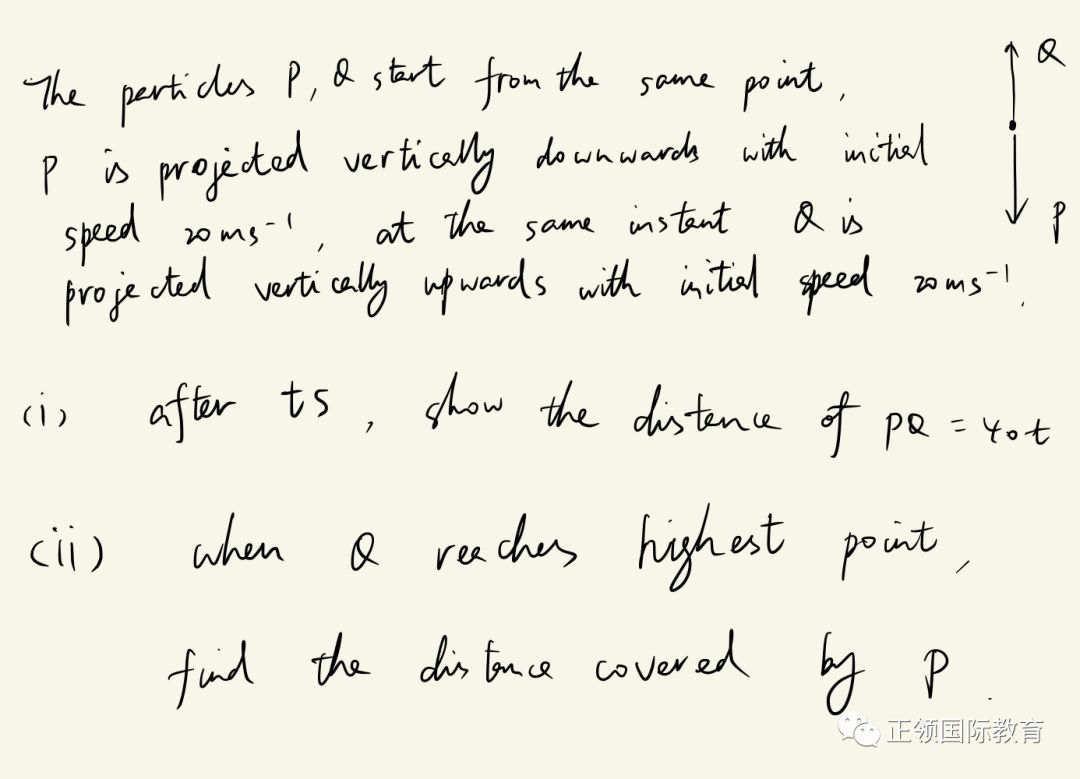 The particles P, Q start from the same point,
Q
P is projected vertically downwards with initial
speed 20 ms⁻¹, at the same instant Q is
P
projected vertically upwards with initial speed 20 ms⁻¹.
(i) after ts, show the distance of PQ = 40t
(ii) when Q reaches highest point,
find the distance covered by P.
正领国际教育